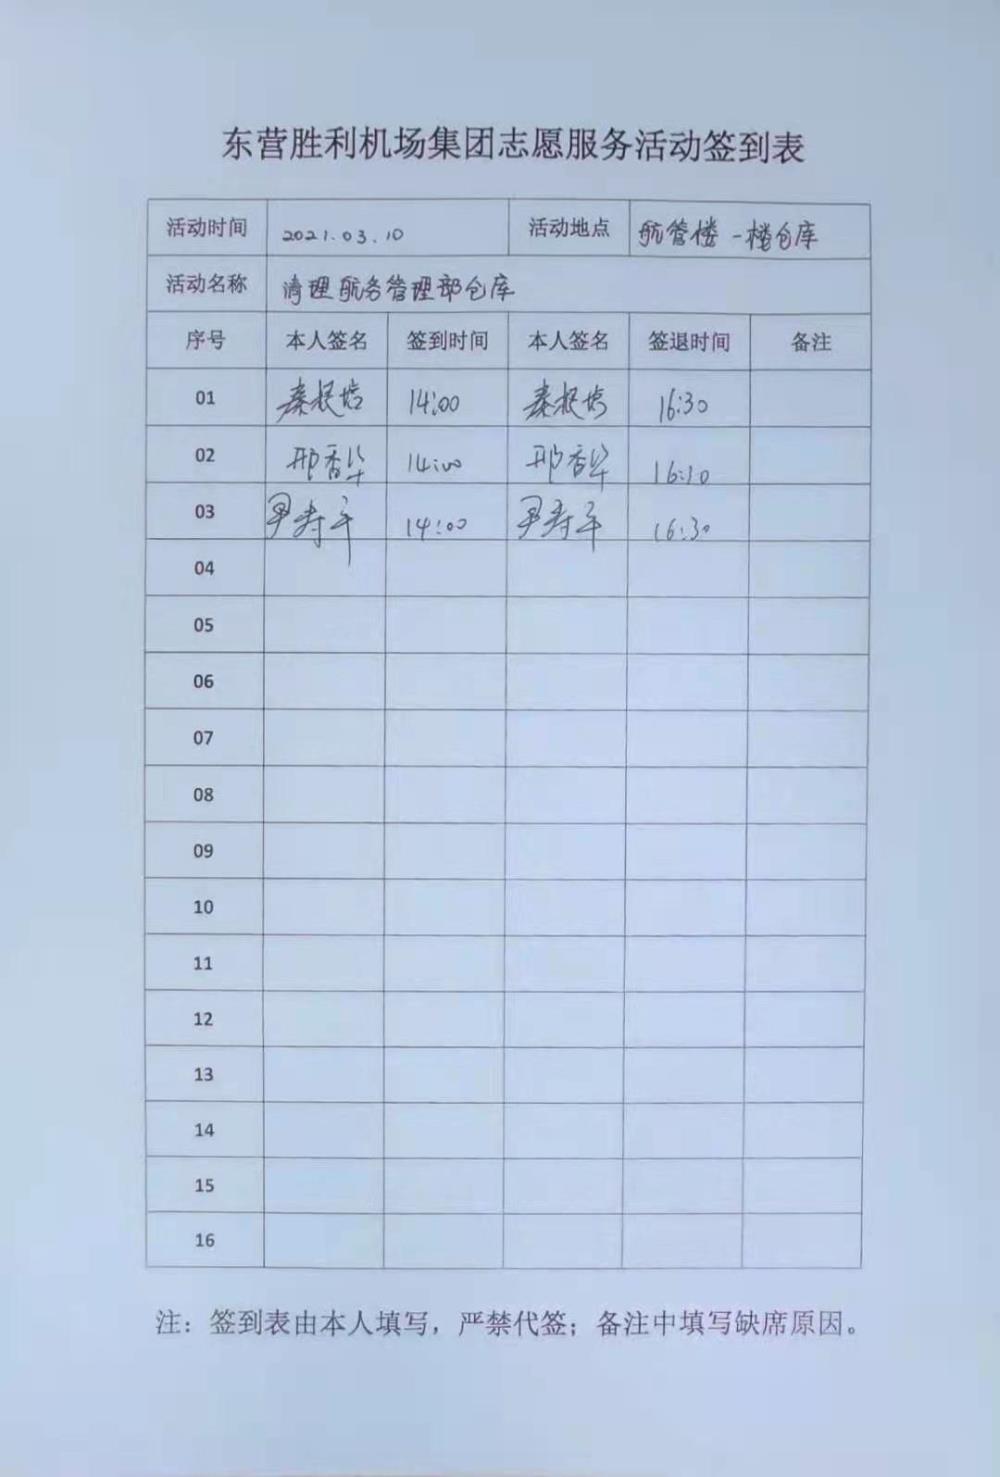 东营胜利机场集团志愿服务活动签到表
活动时间 2021.03.10 活动地点 航管楼一楼仓库
活动名称 清理航务管理部仓库
序号 本人签名 签到时间 本人签名 签退时间 备注
01 14:00 16:30
02 邢香华 14:00 邢香华 16:30
03 尹寿平 14:00 尹寿平 16:30
04
05
06
07
08
09
10
11
12
13
14
15
16
注：签到表由本人填写，严禁代签；备注中填写缺席原因。